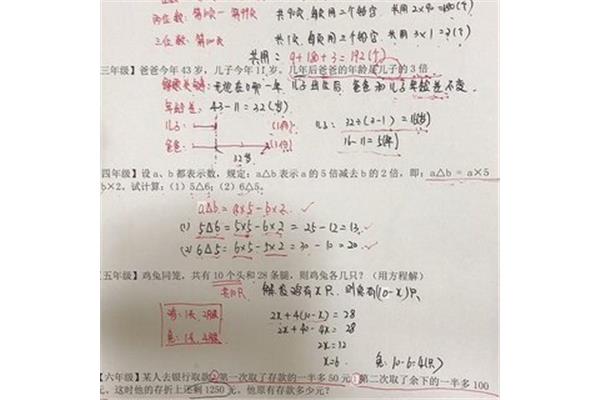 两位数:第10页—第99页 共90页,每页用二个数字 共用2×90=180(个)
三位数:第100页 共1页,每页用三个数字 共用3×1=3(个)
共用:9+180+3=192(个)
三年级】爸爸今年43岁,儿子今年11岁,几年后爸爸的年龄是儿子的3倍
无论在哪一年 爸爸和儿子年龄差不变
年龄差:43-11=32(岁)
儿子: 儿子:32÷(3-1)=16(岁)
爸爸: 16-11=5(年)
32岁
四年级】设a、b都表示数,规定:a△b表示a的5倍减去b的2倍,即:a△b = a×5
b×2。试计算:(1)5△6;(2)6△5。
a△b=a×5-b×2
(1) 5△6=5×5-6×2=25-12=13
(2) 6△5=6×5-5×2=30-10=20
五年级】鸡兔同笼,共有10个头和28条腿,则鸡兔各几只?(用方程解)
共10只 解:设鸡有x只,则兔有(10-x)只
鸡:1头,2腿 2x+4(10-x)=28
兔:1头,4腿 2x+40-4x=28
2x=12
x=6 兔:10-6=4(只)
【六年级】某人去银行取款,第一次取了存款的一半多50元,第二次取了余下的一半多100
元。这时他的存折上还剩1250元。他原有存款多少元?